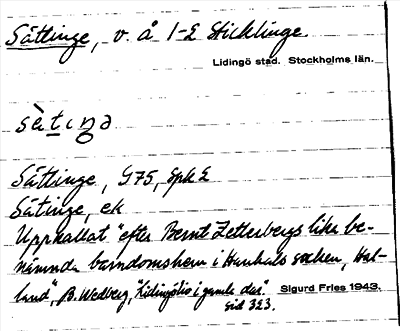 Sättinge, v. å 1-2 Sticklinge.
Lidingö stad. Stockholms län.
sètıŋə
Sättinge, G75, Spk 2
Sätinge, ek
Uppkallat "efter Bernt Zetterbergs lika be-
nämnda barndomshem i Hanhals socken, Hal-
land", B. Wedberg, "Lidingöliv i gamla dar" Sigurd Fries 1943.
sid 323.